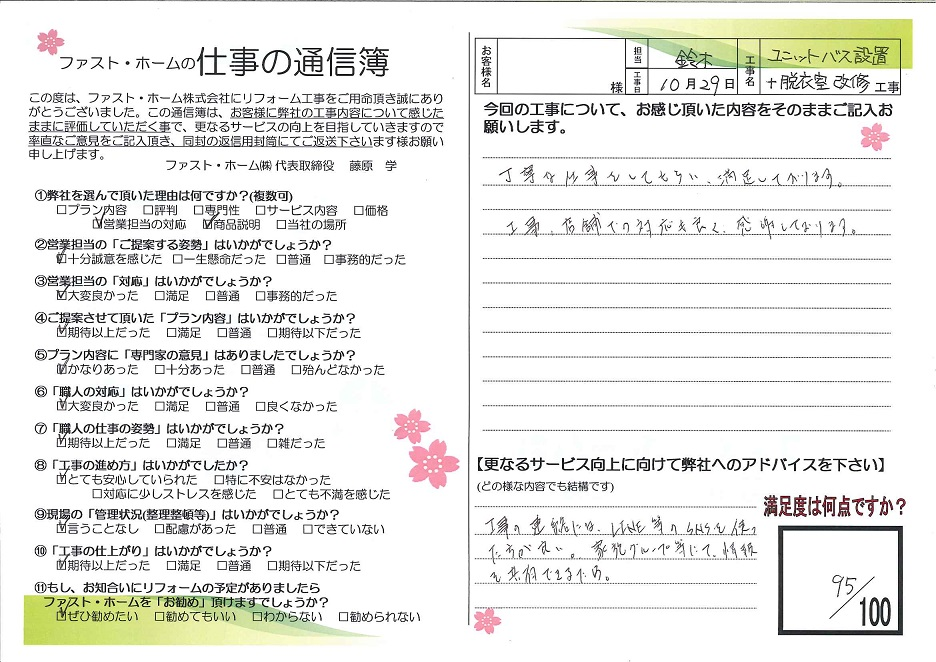 ファスト・ホームの仕事の通信簿
この度は、ファスト・ホーム株式会社にリフォーム工事をご用命頂き誠にあり
がとうございました。この通信簿は、お客様に弊社の工事内容について感じた
ままに評価していただく事で、更なるサービスの向上を目指していきますので
率直なご意見をご記入頂き、同封の返信用封筒にてご返送下さいます様お願い
申し上げます。
ファスト・ホーム㈱ 代表取締役 藤原 学
①弊社を選んで頂いた理由は何ですか?(複数可)
□プラン内容 □評判 □専門性 □サービス内容 □価格
☑営業担当の対応 ☑商品説明 □当社の場所
②営業担当の「ご提案する姿勢」はいかがでしょうか?
☑十分誠意を感じた □一生懸命だった □普通 □事務的だった
③営業担当の「対応」はいかがでしょうか?
☑大変良かった □満足 □普通 □事務的だった
④ご提案させて頂いた「プラン内容」はいかがでしょうか?
☑期待以上だった □満足 □普通 □期待以下だった
⑤プラン内容に「専門家の意見」はありましたでしょうか?
☑かなりあった □十分あった □普通 □殆んどなかった
⑥「職人の対応」はいかがでしょうか?
☑大変良かった □満足 □普通 □良くなかった
⑦「職人の仕事の姿勢」はいかがでしょうか?
☑期待以上だった □満足 □普通 □雑だった
⑧「工事の進め方」はいかがでしたか?
☑とても安心していられた □特に不安はなかった
□対応に少しストレスを感じた □とても不満を感じた
⑨現場の「管理状況(整理整頓等)」はいかがでしょうか?
☑言うことなし □配慮があった □普通 □できていない
⑩「工事の仕上がり」はいかがでしょうか?
☑期待以上だった □満足 □普通 □期待以下だった
⑪もし、お知合いにリフォームの予定がありましたら
ファスト・ホームを「お勧め」頂けますでしょうか?
☑ぜひ勧めたい □勧めてもいい □わからない □勧められない
お客様名 様 担当 鈴木 工事名 ユニットバス設置
工事日 10月29日 +脱衣室改修工事
今回の工事について、お感じ頂いた内容をそのままご記入お
願いします。
丁寧な仕事をしてもらい、満足しております。
工事、店舗での対応も良く、感謝しております。
【更なるサービス向上に向けて弊社へのアドバイスを下さい】
(どの様な内容でも結構です)
工事の連絡には、LINE等のSNSを使っ
た方が良い。家族グループ等にて、情報
を共有できるため。
満足度は何点ですか?
95/100